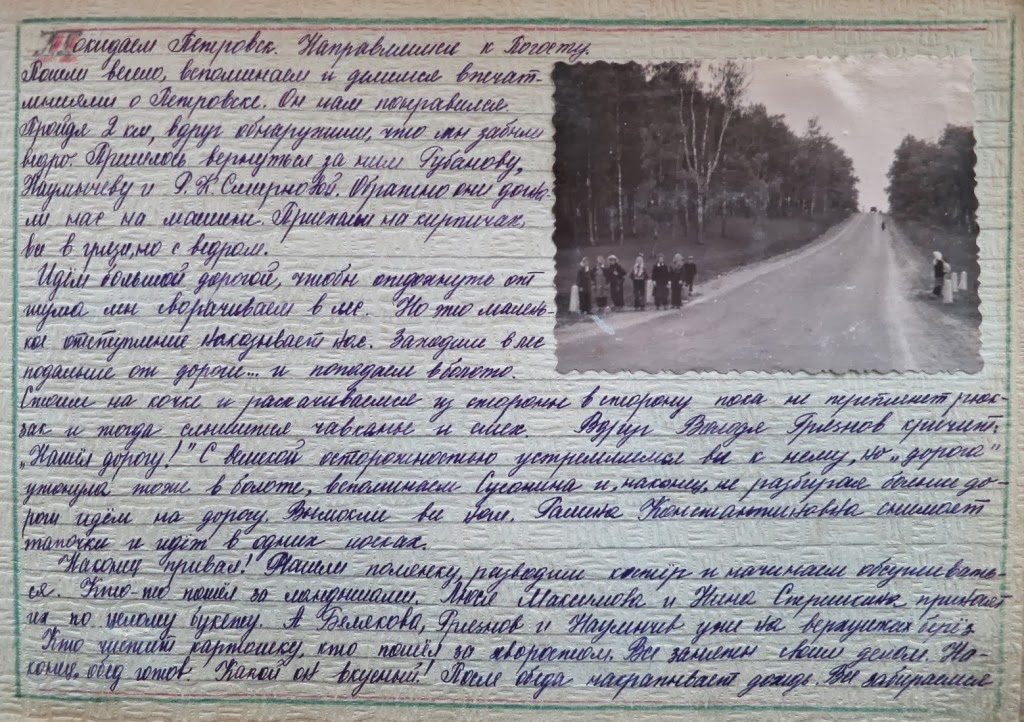 Покидаем Петровск. Направляемся к Погосту.
Пошли весело, вспоминаем и делимся впечат-
лениями о Петровске. Он нам понравился.
Пройдя 2 км, вдруг обнаружили, что мы забыли
ведро. Пришлось вернуться за ним Губанову,
Наумычеву и Г. К. Смирновой. Обратно они догна-
ли нас на машине. Приехали на кирпичах,
все в грязи, но с ведром.
Идём большой дорогой, чтобы отдохнуть от
шума мы сворачиваем в лес. Но это малень-
кое отступление наказывает нас. Заходим в лес
подальше от дороги... и попадаем в болото.
Стоим на кочке и раскачиваемся из стороны в сторону пока не перетянет рюк-
зак и тогда слышится чавканье и смех. Вдруг Володя Грезнов кричит:
„Нашёл дорогу!" С великой осторожностью устремляемся все к нему, но „дорога"
утонула тоже в болоте, вспоминаем Сусанина и, наконец, не разбирая больше до-
роги идём на дорогу. Вымокли все ноги. Галина Константиновна снимает
тапочки и идёт в одних носках.
Наконец привал! Нашли полянку, разводим костёр и начинаем обсушивать-
ся. Кто-то пошёл за ландышами. Люся Максимова и Нина Стришкина приносят
их по целому букету. А Белякова, Грезнов и Наумычев уже на верхушках берёз.
Кто чистит картошку, кто пошёл за хворостом. Все заняты своим делом. На-
конец, обед готов. Какой он вкусный! После обеда накрапывает дождь. Все забираемся